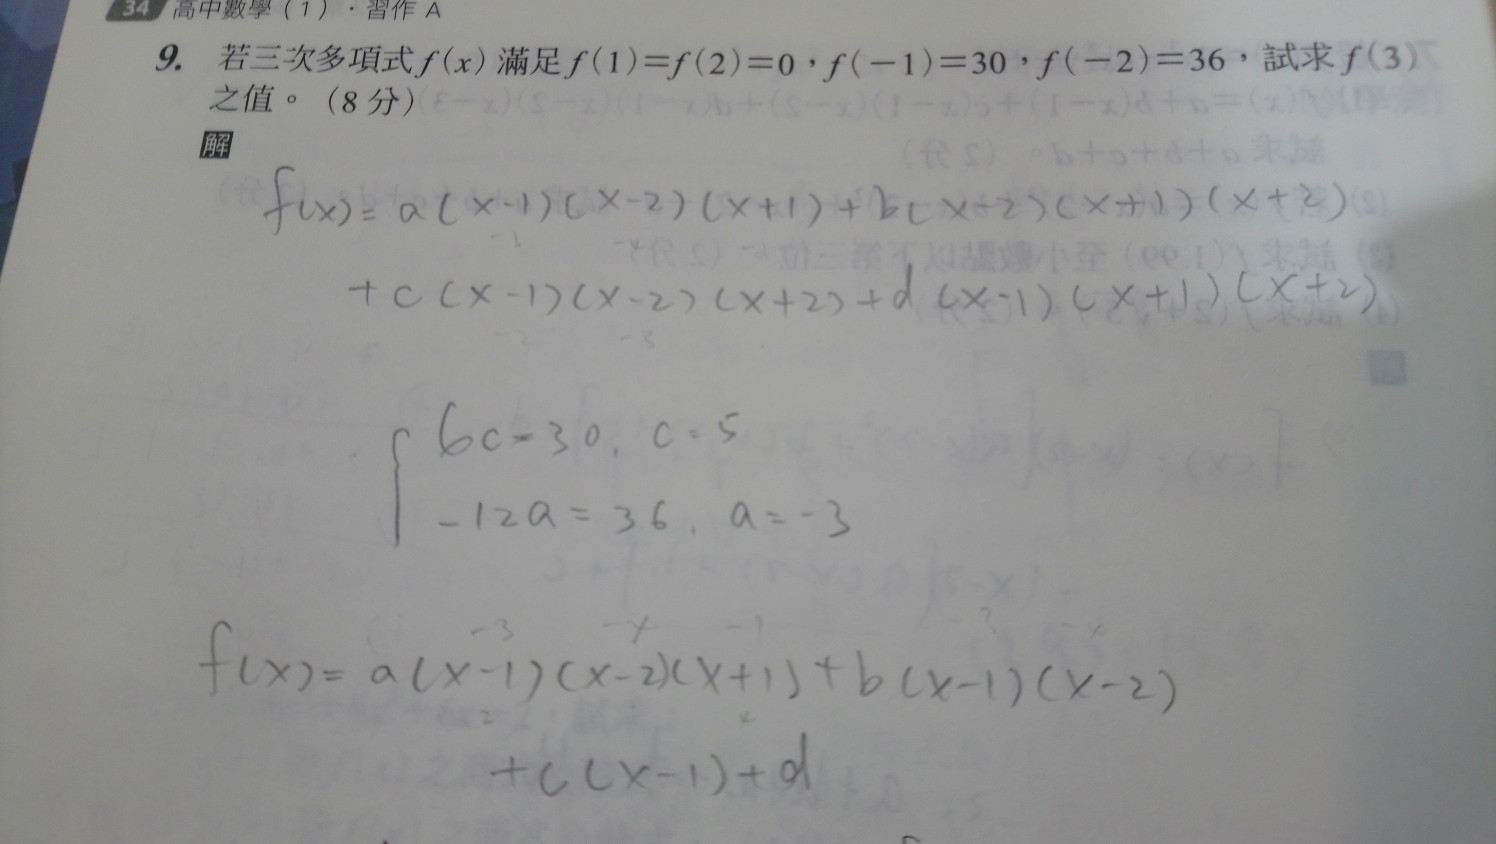 34 高中數學（1）．習作 A
9. 若三次多項式 f(x) 滿足 f(1)=f(2)=0，f(−1)=30，f(−2)=36，試求 f(3)
之值。（8 分）
解
f(x)= a(x-1)(x-2)(x+1)+b(x-2)(x+1)(x+2)
+c(x-1)(x-2)(x+2)+d(x-1)(x+1)(x+2)
6c=30, c=5
-12a=36, a=-3
f(x)= a(x-1)(x-2)(x+1)+b(x-1)(x-2)
+c(x-1)+d